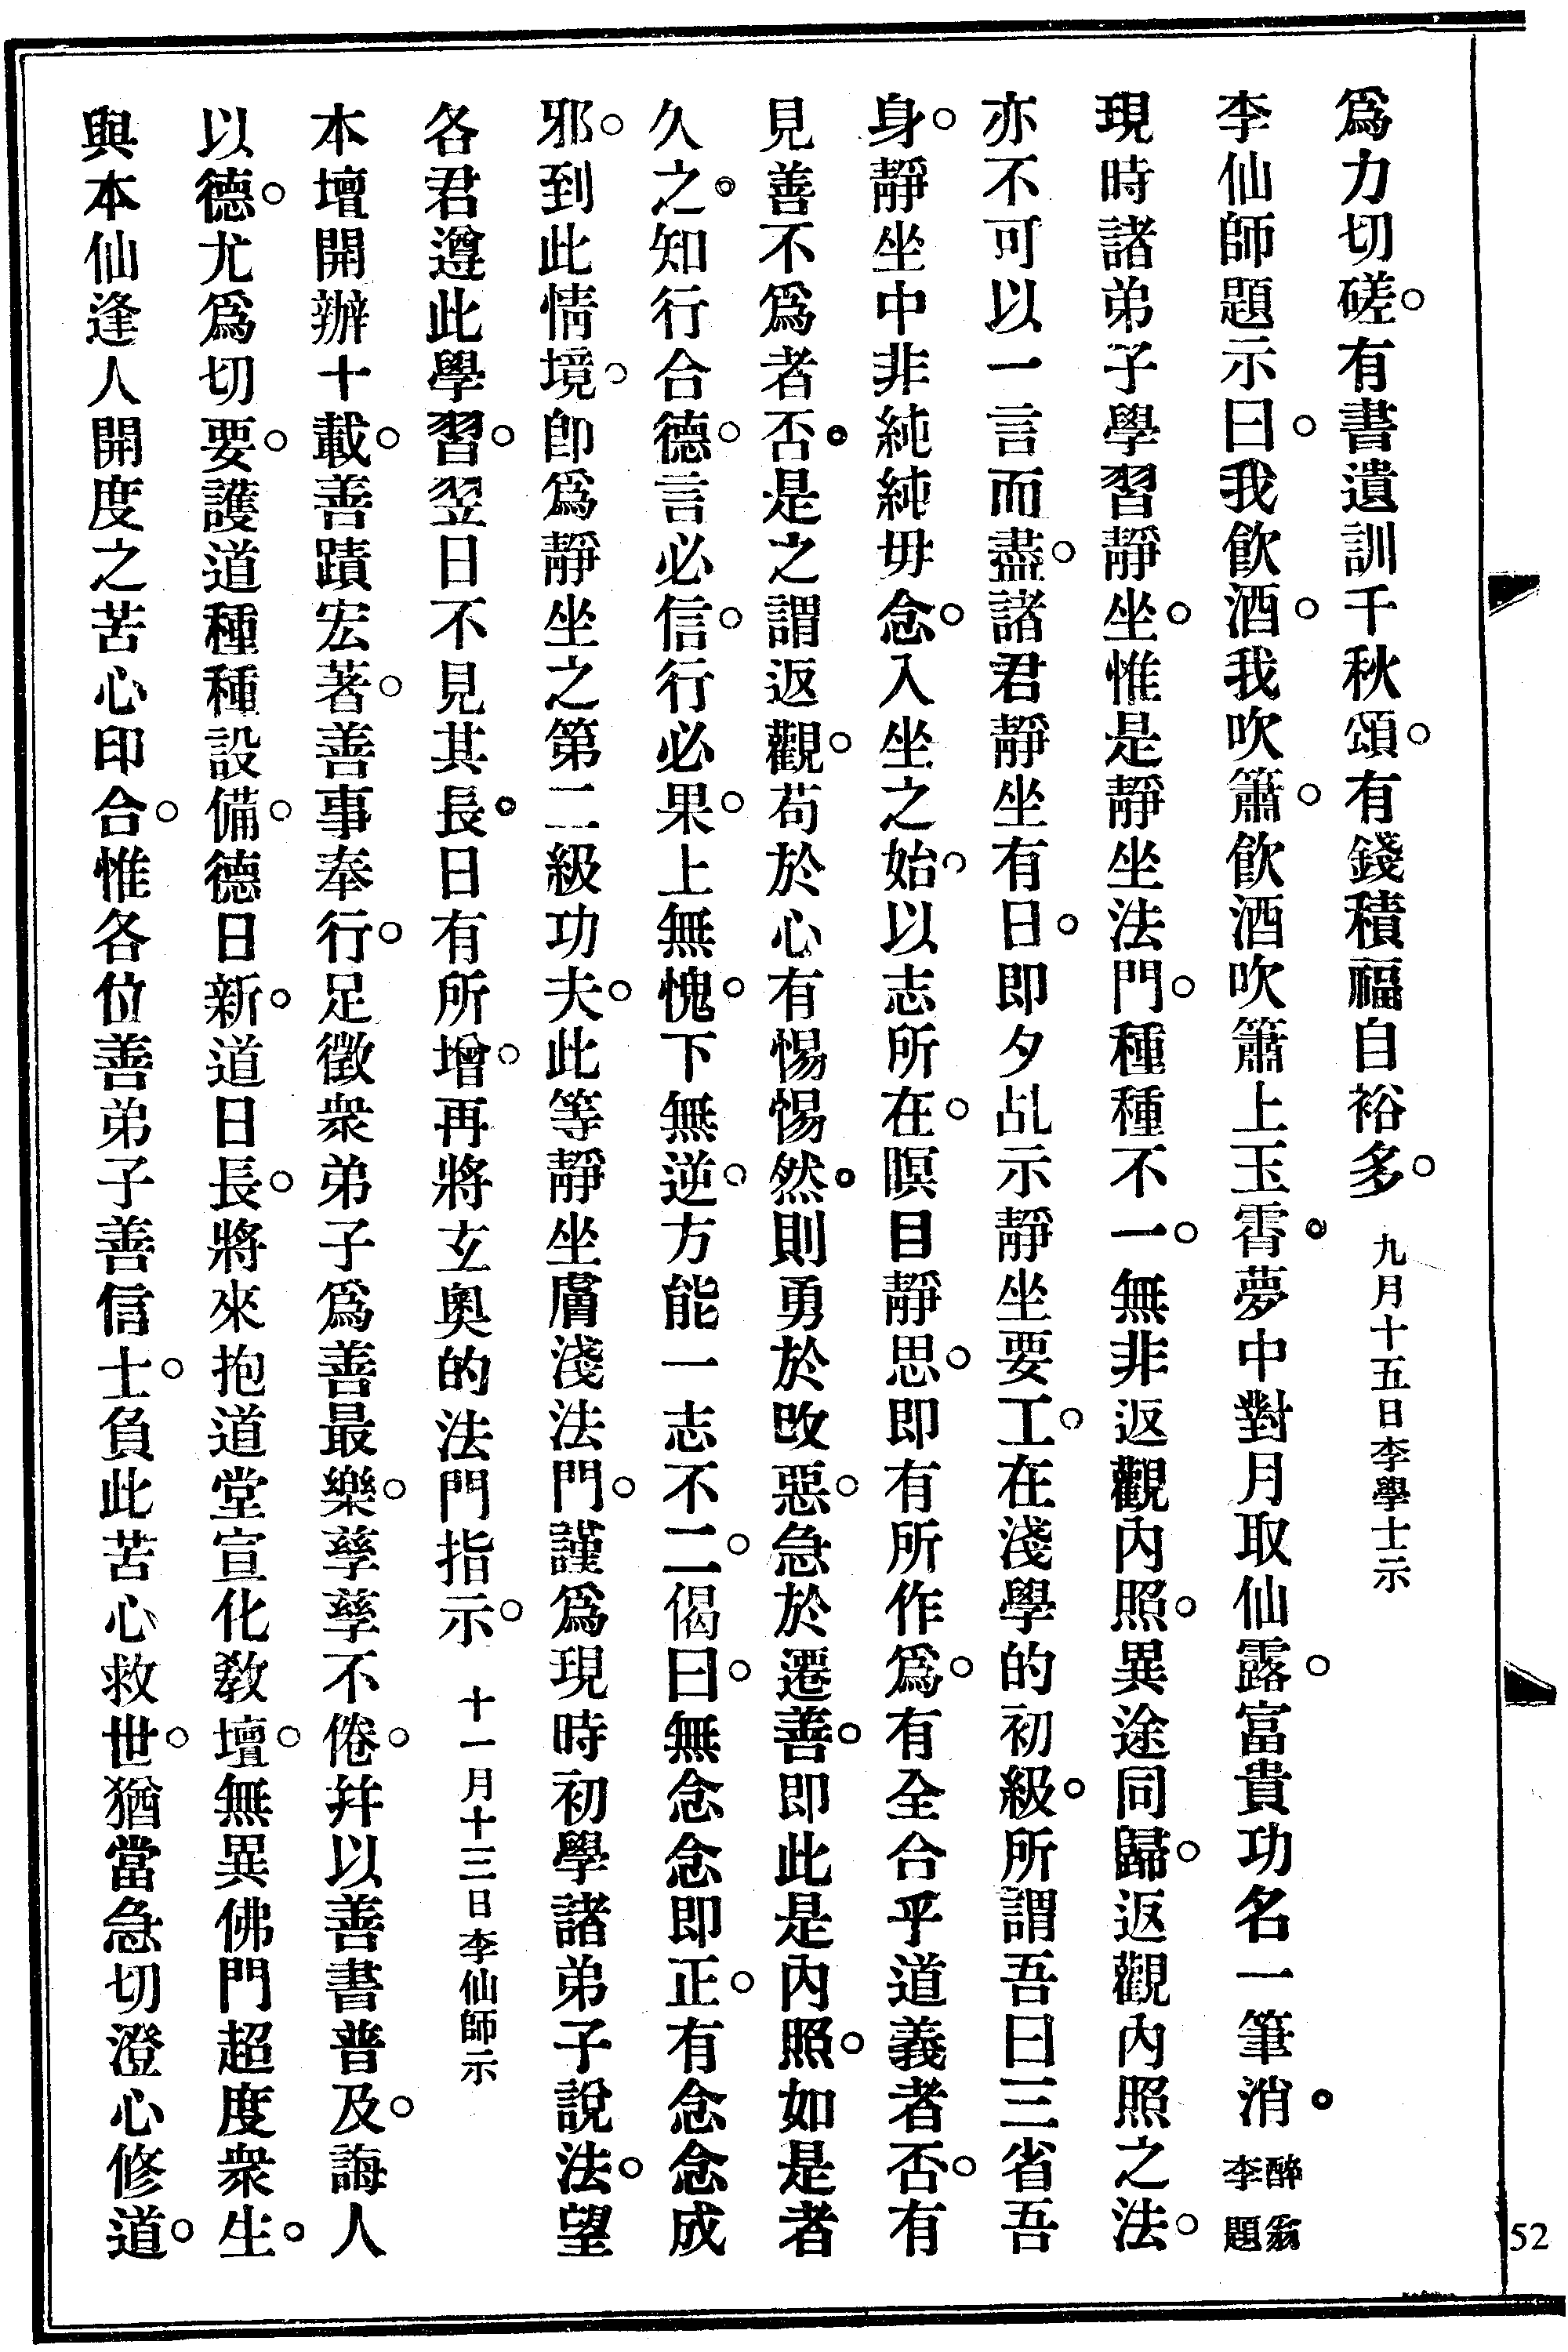 爲力切磋。有書遺訓千秋頌。有錢積福自裕多。九月十五日李學士示
李仙師題示曰。我飲酒。我吹簫。飲酒吹簫上玉霄。夢中對月取仙露。富貴功名一筆消。醉翁李題
現時諸弟子學習靜坐。惟是靜坐法門。種種不一。無非返觀內照。異途同歸。返觀內照之法。
亦不可以一言而盡。諸君靜坐有日。即夕乩示靜坐要工。在淺學的初級。所謂吾曰三省吾
身。靜坐中非純純毋念。入坐之始。以志所在。瞑目靜思。即有所作爲。有全合乎道義者否。有
見善不爲者否。是之謂返觀。苟於心有惕惕然。則勇於改惡。急於遷善。即此是內照。如是者
久之。知行合德。言必信。行必果。上無愧。下無逆。方能一志不二。偈曰。無念念即正。有念念成
邪。到此情境。卽爲靜坐之第二級功夫。此等靜坐膚淺法門。謹爲現時初學諸弟子說法。望
各君遵此學習。翌日不見其長。日有所增。再將玄奧的法門指示。十一月十三日李仙師示
本壇開辦十載。善蹟宏著。善事奉行。足徵衆弟子爲善最樂。孳孳不倦。幷以善書普及。誨人
以德。尤爲切要。護道種種設備。德日新。道日長。將來抱道堂宣化敎壇。無異佛門超度衆生。
與本仙逢人開度之苦心印合。惟各位善弟子善信士。負此苦心救世。猶當急切澄心修道。
52